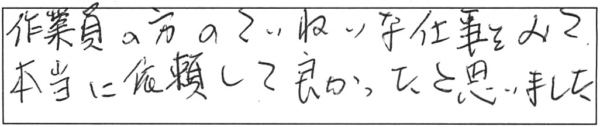 作業員の方のていねいな仕事をみて
本当に依頼して良かったと思いました